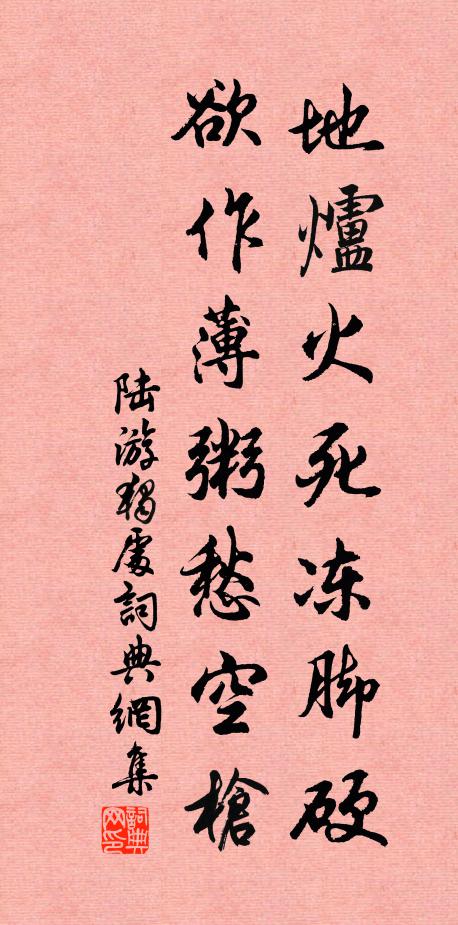 地爐火死冻脚硬
欲作薄粥愁空槍
陆游獨處詞典網集
詞典
网印